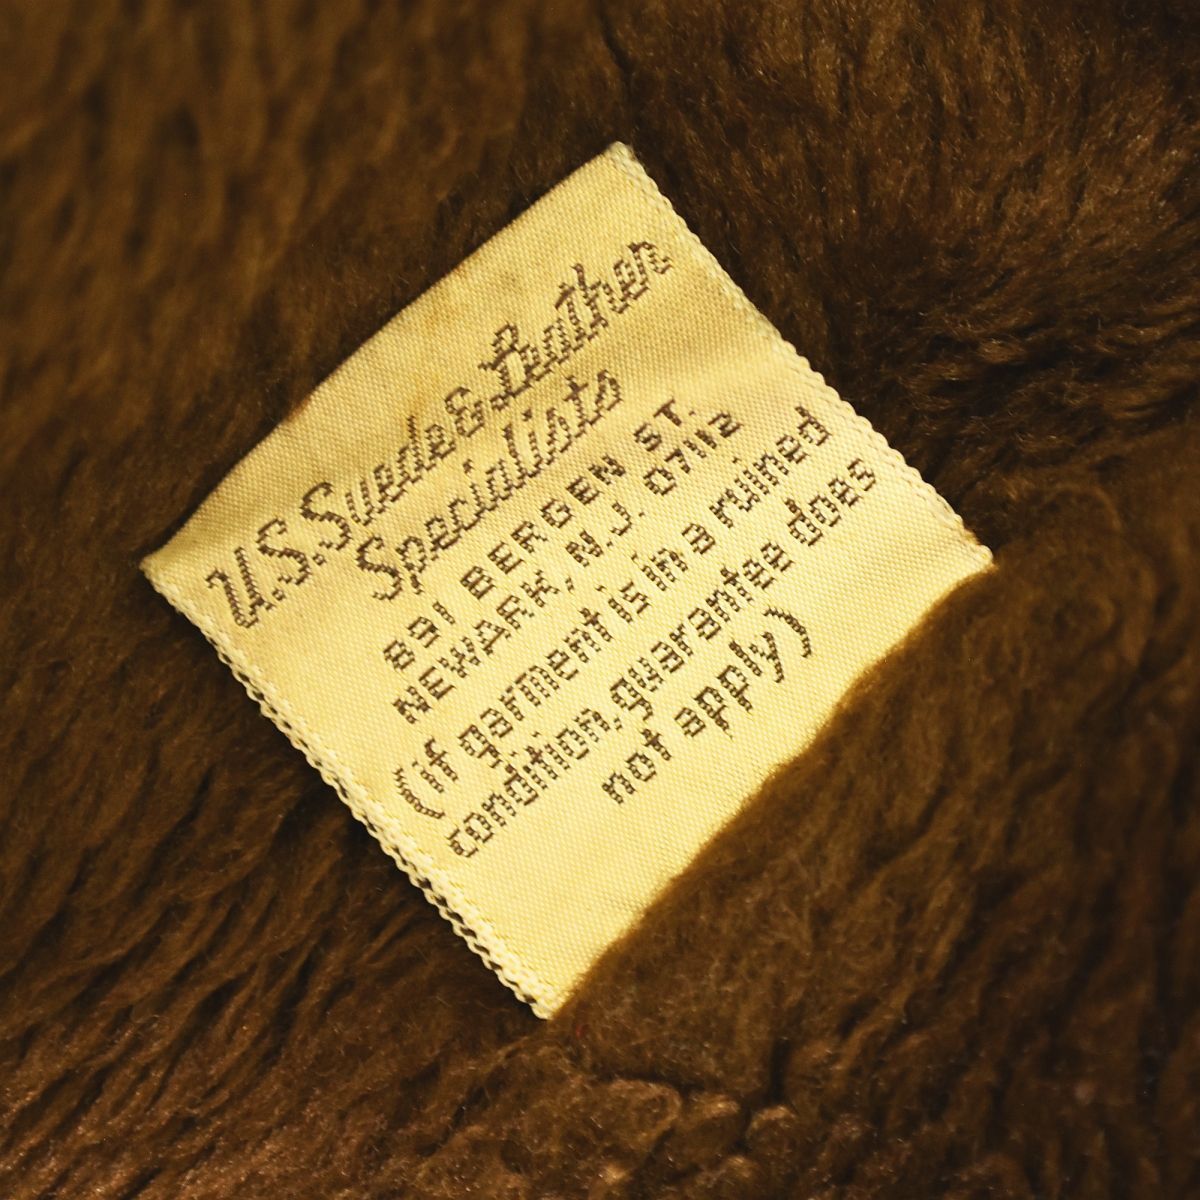 U.S. Suede & Leather
Specialists
891 BERGEN ST.
NEWARK, N.J. 07112
(if garment is in a ruined
condition, guarantee does
not apply)